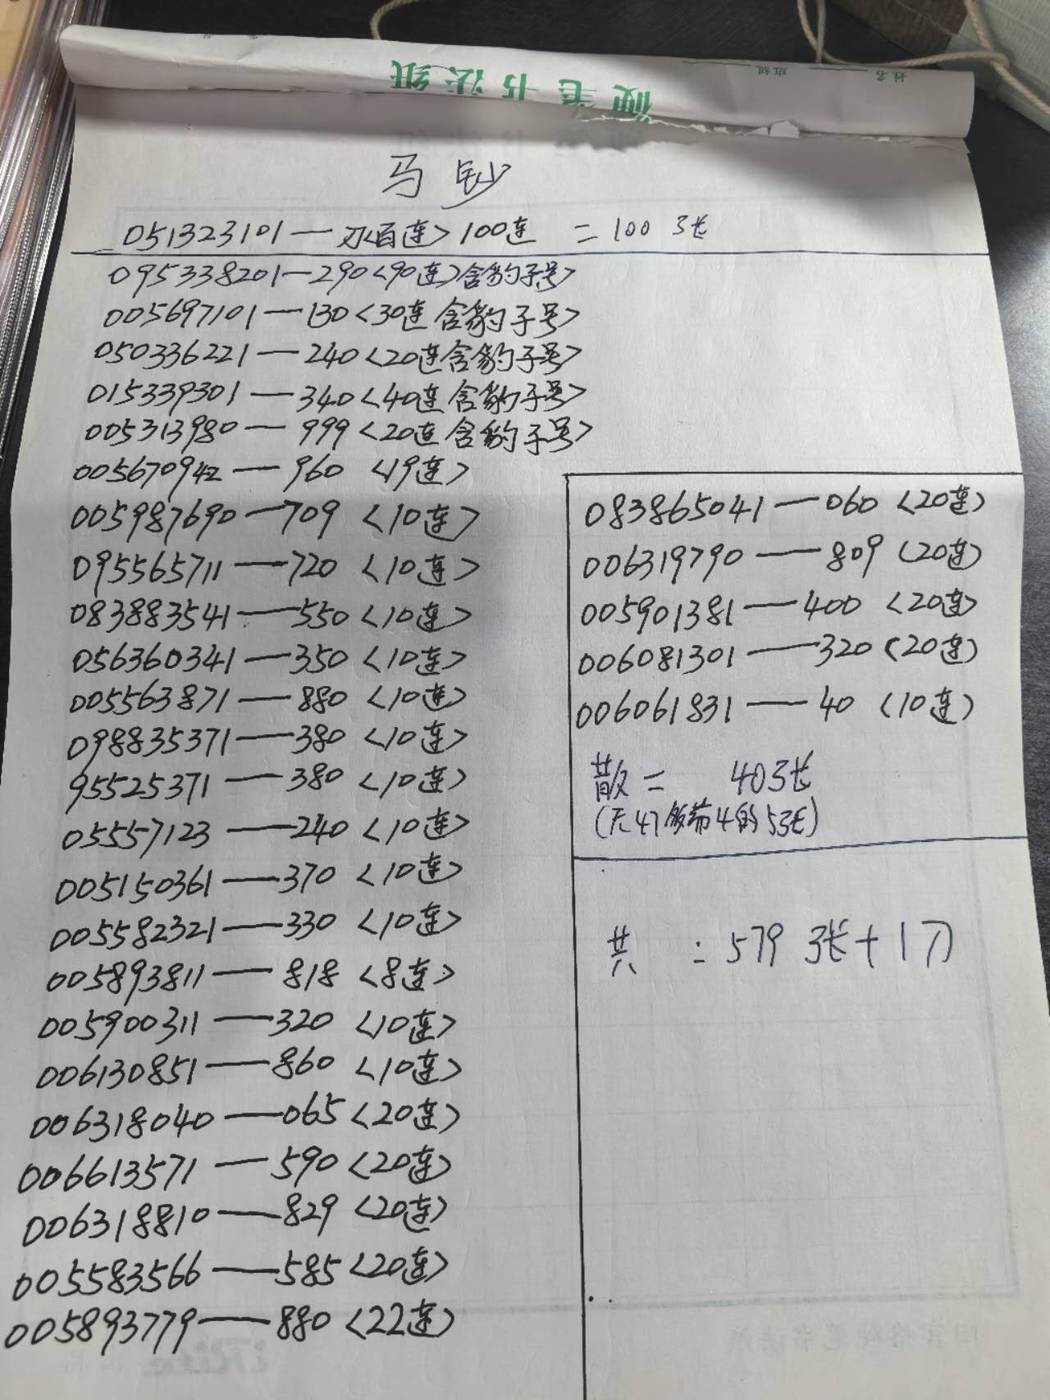 硬笔书法纸
班级
姓名
马钞
051323101— 100连 =100张
095338201—290<90连>含豹子号>
005697101—130<30连含豹子号>
050336221—240<20连含豹子号>
015339301—340<40连含豹子号>
005313980—999<20连含豹子号>
005670942—960 <19连>
005987690—709 <10连>
095565711—720 <10连>
083883541—550<10连>
056360341—350<10连>
005563871—880<10连>
098835371—380<10连>
95525371—380<10连>
05557123—240<10连>
005150361—370<10连>
005582321—330<10连>
005893811—818<8连>
005900311—320<10连>
006130851—860<10连>
006318040—065<20连>
006613571—590<20连>
006318810—829<20连>
005583566—585<20连>
005893779—880<22连>
083865041—060<20连>
006319790—809<20连>
005901381—400<20连>
006081301—320<20连>
006061831—40(10连)
散= 40张
(无47 带4的5张)
共:579张+1刀